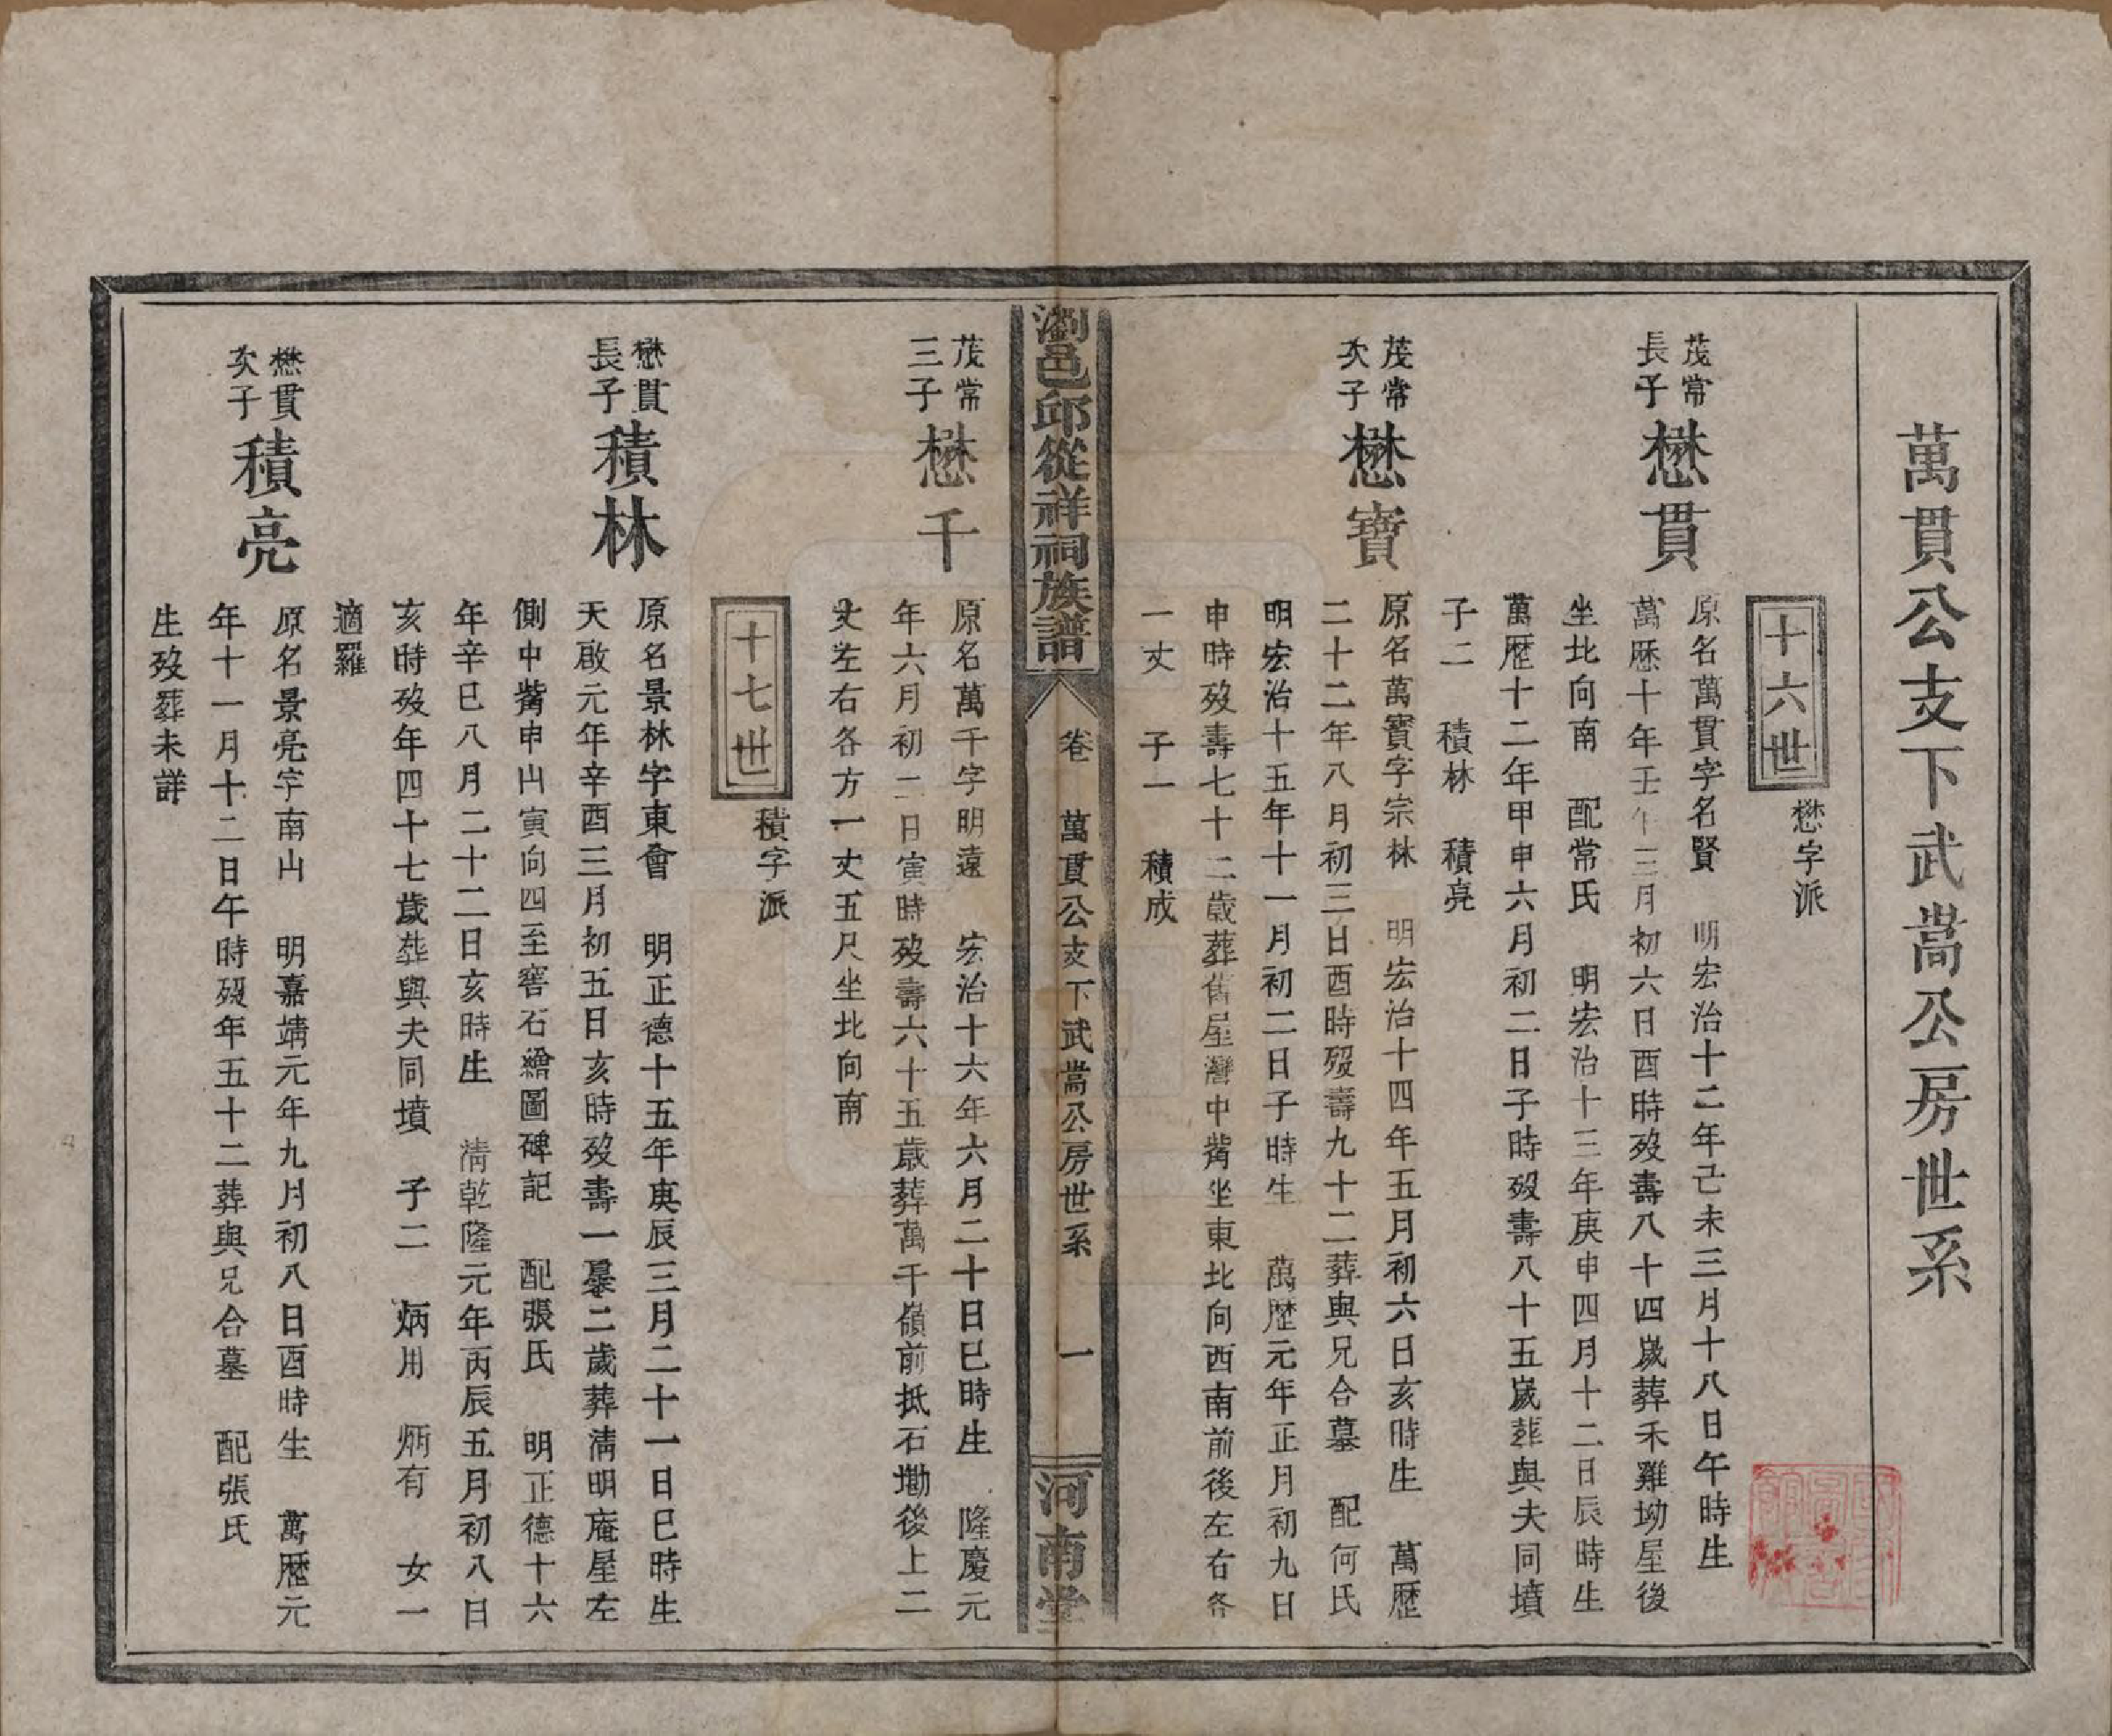 萬貫公支下武嵩公房世系
十六世
懋字派
茂常
長子
懋貫
原名萬貫字名賢　明宏治十二年己未三月十八日午時生
萬歷十年壬午三月初六日酉時歿壽八十四歲葬禾雞坳屋後
坐北向南　配常氏　明宏治十三年庚申四月十二日辰時生
萬歷十二年甲申六月初二日子時歿壽八十五歲葬與夫同墳
子二　積林　積亮
茂常
次子
懋寶
原名萬寶字宗林　明宏治十四年五月初六日亥時生　萬歷
二十二年八月初三日酉時歿壽九十二葬與兄合墓　配何氏
明宏治十五年十一月初二日子時生　萬歷元年正月初九日
申時歿壽七十二歲葬舊屋灣中嘴坐東北向西南前後左右各
一丈　子一　積成
瀏邑邱從祥祠族譜
卷　萬貫公支下武嵩公房世系　一
河南堂
茂常
三子
懋千
原名萬千字明遠　宏治十六年六月二十日巳時生　隆慶元
年六月初二日寅時歿壽六十五歲葬萬千嶺前抵石墈後上二
丈左右各方一丈五尺坐北向南
十七世
積字派
懋貫
長子
積林
原名景林字東會　明正德十五年庚辰三月二十一日巳時生
天啟元年辛酉三月初五日亥時歿壽一㬥二歲葬清明庵星左
側中嘴申山寅向四至窖石繪圖碑記　配張氏　明正德十六
年辛巳八月二十二日亥時生　清乾隆元年丙辰五月初八日
亥時歿年四十七歲葬與夫同墳　子二　炳用　炳有　女一
適羅
懋貫
次子
積亮
原名景亮字南山　明嘉靖元年九月初八日酉時生　萬歷元
年十一月十二日午時歿年五十二葬與兄合墓　配張氏
生歿葬未詳